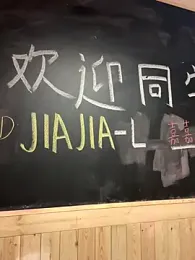 欢迎同
D JIAJIA-L
嘉嘉